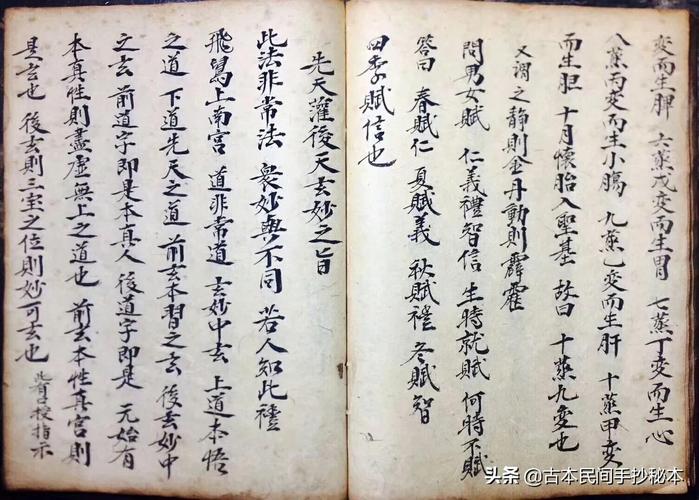 変而生脾 六蒸戊変而生胃 七蒸丁変而生心
八蒸丙変而生小腸 九蒸乙変而生肝 十蒸甲変
而生胆 十月懐胎入聖基 故曰 十蒸九変也
又謂之静則金丹動則霹靂
問男女賦 仁義禮智信 生時就賦 何時不賦
答曰 春賦仁 夏賦義 秋賦禮 冬賦智
四季賦信也
先天灌後天玄妙之旨
此法非常法 衆妙與不同 若人知此禮
飛舄上南宮 道非常道 玄妙中玄 上道本悟
之道 下道先天之道 前玄本習之玄 後玄妙中
之玄 前道字即是本真人 後道字即是 元始有
本真性則盡虚無上之道也 前玄本性真宮則
具玄也 後玄則三室之位則妙可玄也
頭条 @古本民间手抄秘本